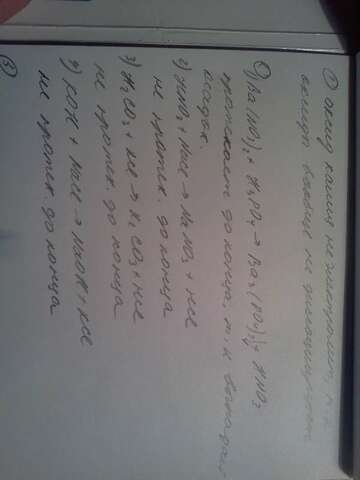 ① оксид калия не электролит, т.к
оксиды вообще не диссоциируют
② Ba(NO₃)₂ + H₃PO₄ → Ba₃(PO₄)₂↓ + HNO₃
протекает до конца, т.к выпадает
осадок.
2) HNO₃ + NaCl → NaNO₃ + HCl
не протек. до конца
3) H₂CO₃ + → K₂CO₃ + HCl
не протек. до конца
4) KOH + NaCl → NaOH + KCl
не протек. до конца
③